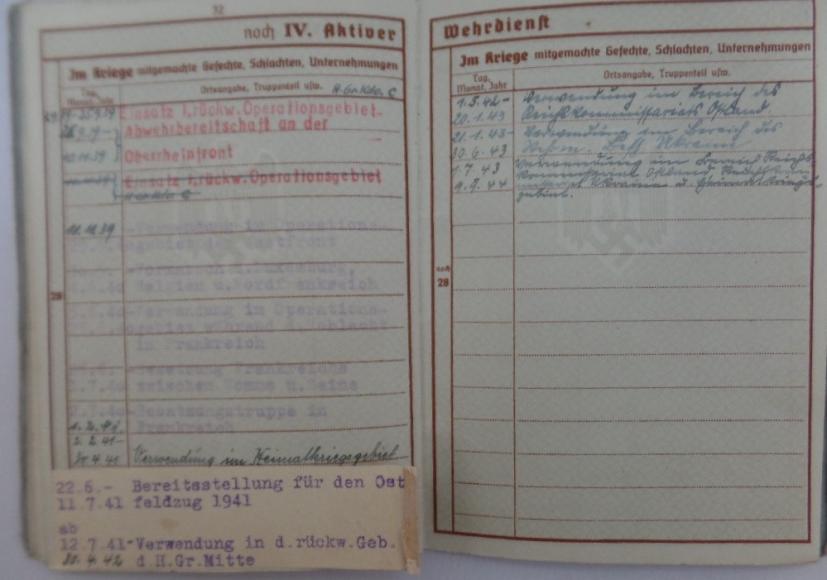 32
noch IV. Aktiver
Im Kriege mitgemachte Gefechte, Schlachten, Unternehmungen
Tag, Monat, Jahr
Ortsangabe, Truppenteil usw. H.Gr.Kdo. C
Einsatz i.rückw.Operationsgebiet-
Abwehrbereitschaft an der
Oberrheinfront
Einsatz i.rückw.Operationsgebiet
-Verwendung im Operations-
gebiet der Westfront
28
Belgien u.Nordfrankreich
-Verwendung im Operations-
gebiet während d.Schlacht
in Frankreich
-Besetzung Frankreichs
zwischen Somme u.Seine
-Besatzungstruppe in
Frankreich
2.2.41-
30.4.41 Verwendung im Heimatkriegsgebiet
22.6.- Bereitsstellung für den Ost
11.7.41 feldzug 1941
ab
12.7.41-Verwendung in d.rückw.Geb.
30.4.42 d.H.Gr.Mitte
Wehrdienst
Im Kriege mitgemachte Gefechte, Schlachten, Unternehmungen
Tag, Monat, Jahr
Ortsangabe, Truppenteil usw.
1.5.42- Verwendung im Bereich des
20.1.43 Reichskommissariats Ostland
21.1.43- Verwendung im Bereich des
30.6.43 Wehrm. Bef. Ukraine
1.7.43 Verwendung im Bereich Reichs
9.9.44 kommissariat Ostland
Ukraine u. Heimatkriegs
gebiet.
noch
28